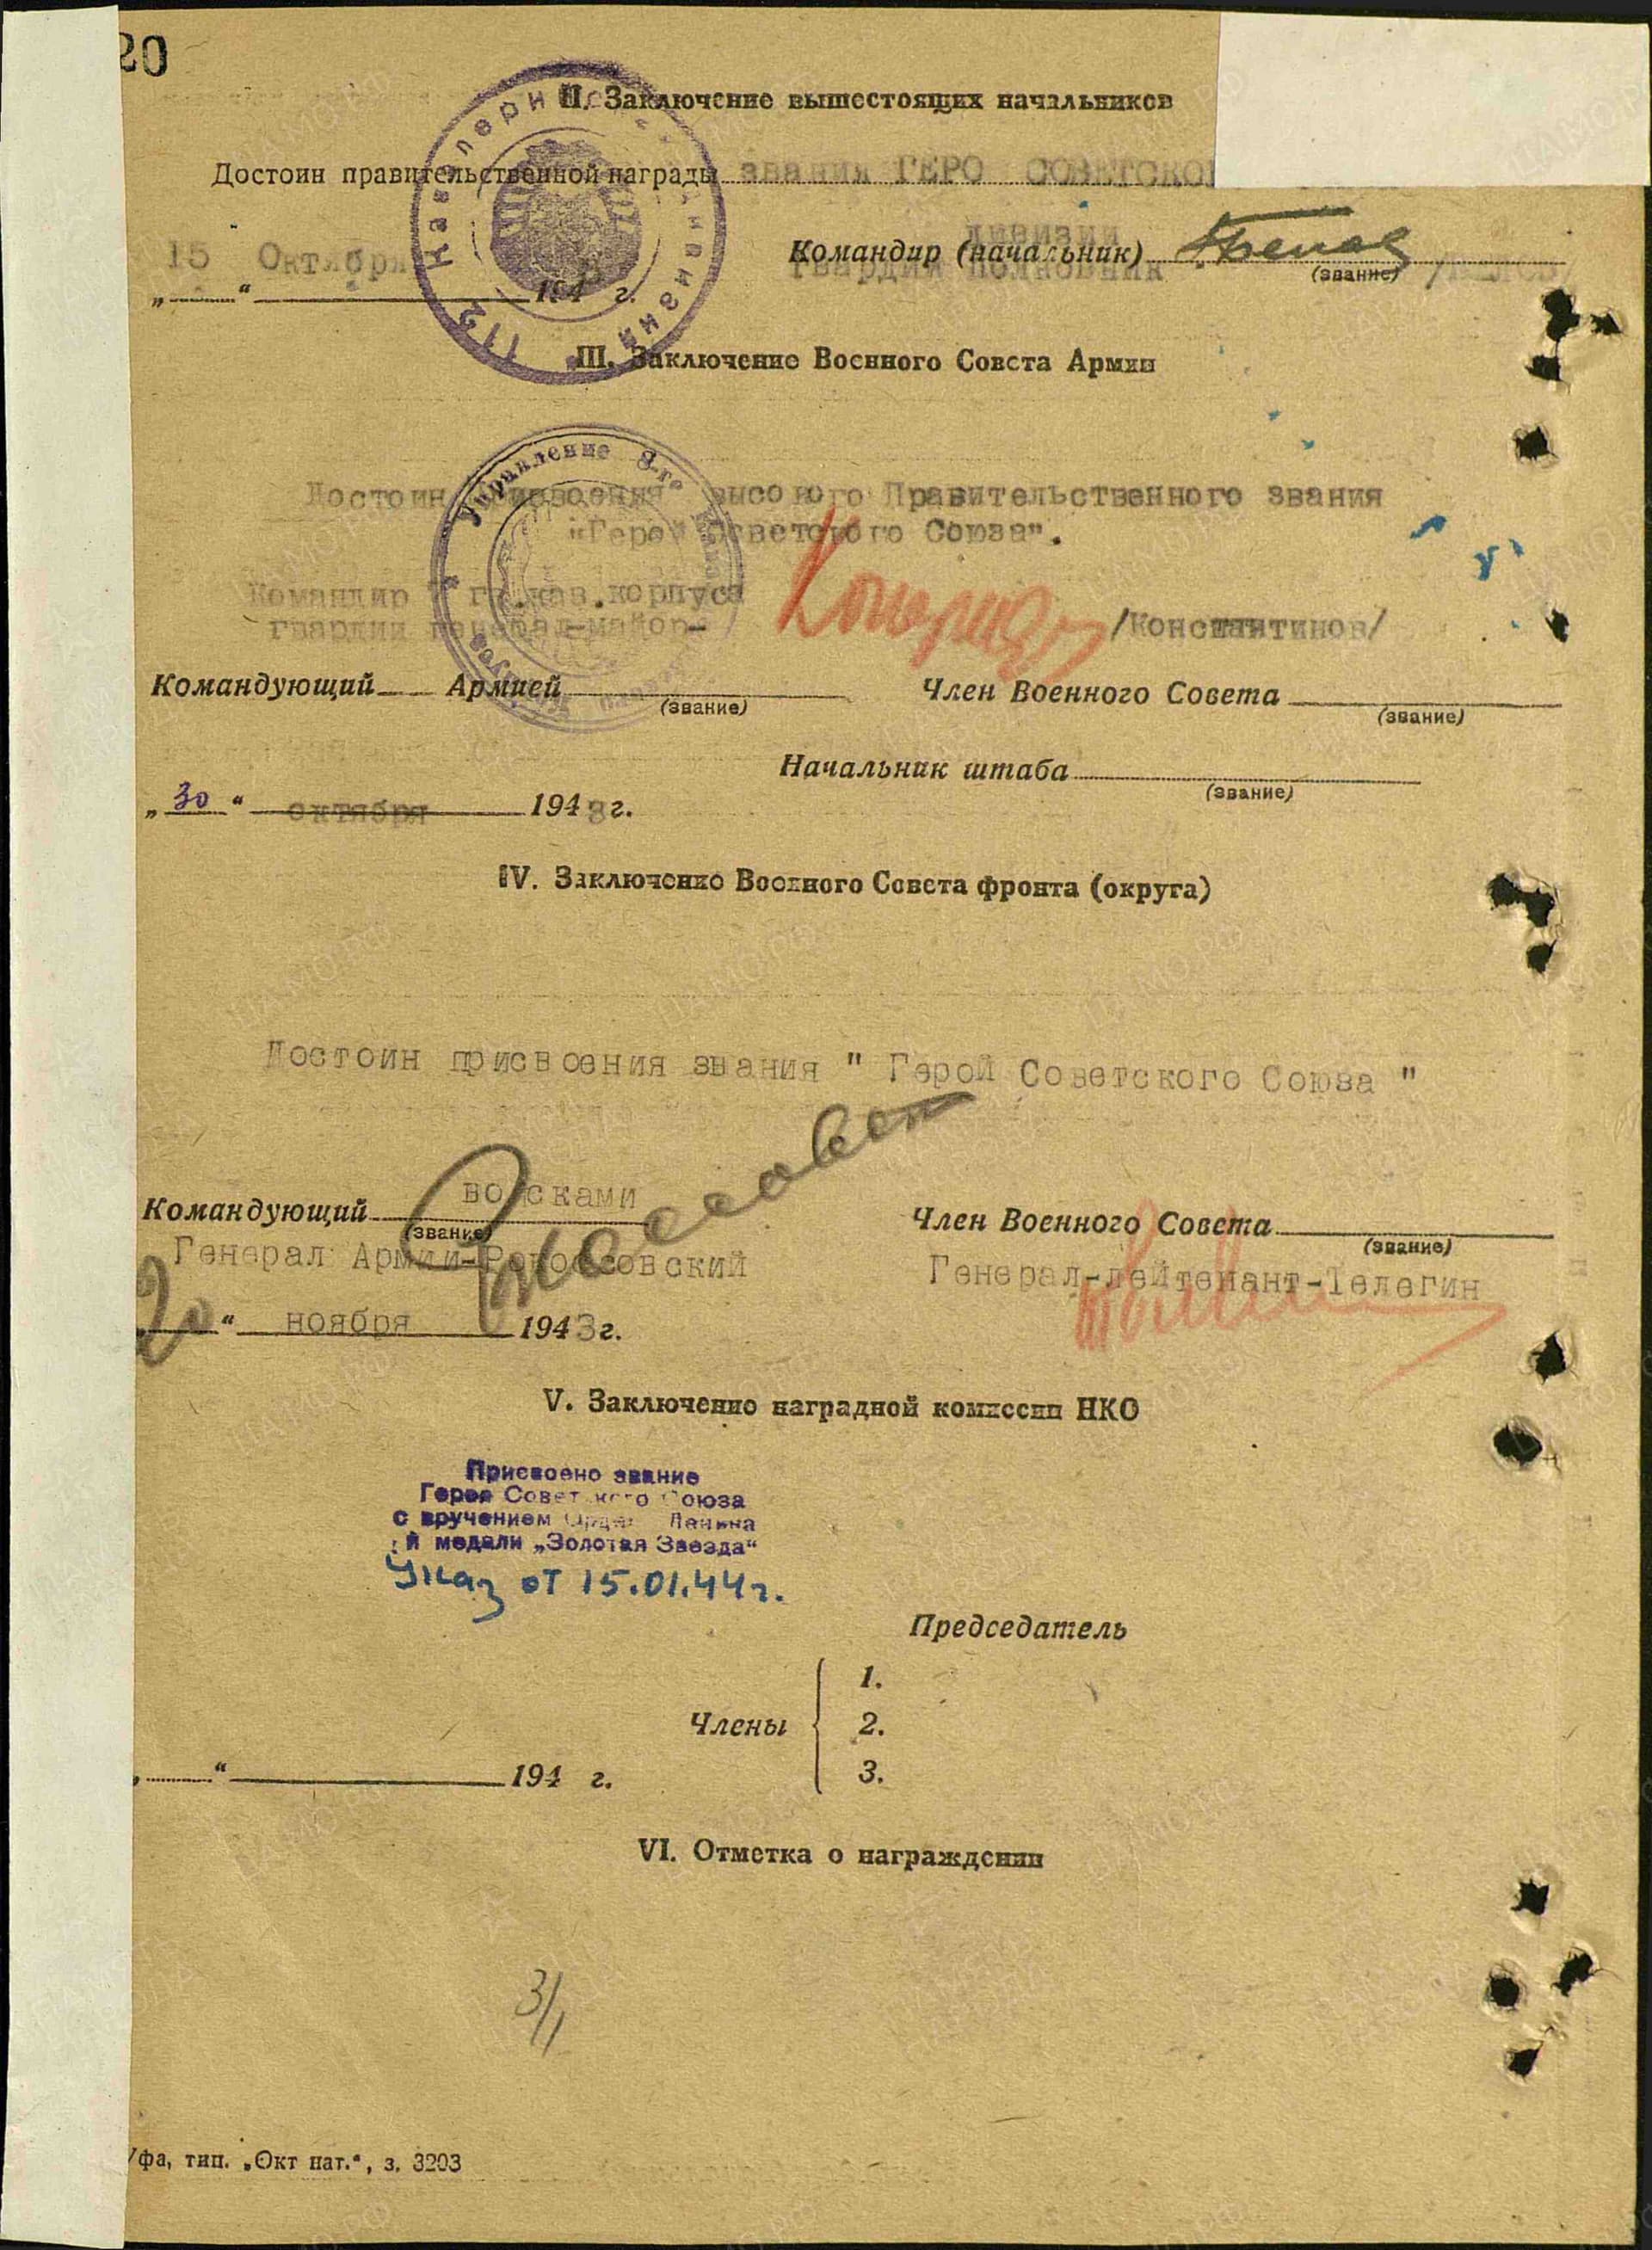 20
II. Заключение вышестоящих начальников
Достоин правительственной награды звания ГЕРО СОВЕТСКО
15 Октября
дивизии
Командир (начальник)
гвардии полковник
(звание)
„ “ 194 г.
Кавалерийс дивизии 112
III. Заключение Военного Совета Армии
Управление 8-го
Достоин присвоения высокого Правительственного звания
"Герой Советского Союза".
Командир гв.кав.корпуса
гвардии генерал-майор- /Константинов/
Командующий Армией
(звание)
Член Военного Совета
(звание)
Начальник штаба
(звание)
„30“ октября 1943 г.
IV. Заключение Военного Совета фронта (округа)
Достоин присвоения звания " Герой Советского Союза "
Командующий войсками
(звание)
Генерал Армии-Рокоссовский
Член Военного Совета
(звание)
Генерал-лейтенант-Телегин
20 “ ноября 1943 г.
V. Заключение наградной комиссии НКО
Присвоено звание
Героя Советского Союза
с вручением Орде Ленина
и медали „Золотая Звезда“
Указ от 15.01.44г.
Председатель
Члены
1.
2.
3.
„ “ 194 г.
VI. Отметка о награждении
3/1
Уфа, тип. „Окт нат.“, з. 3203
ЦАМО.РФ